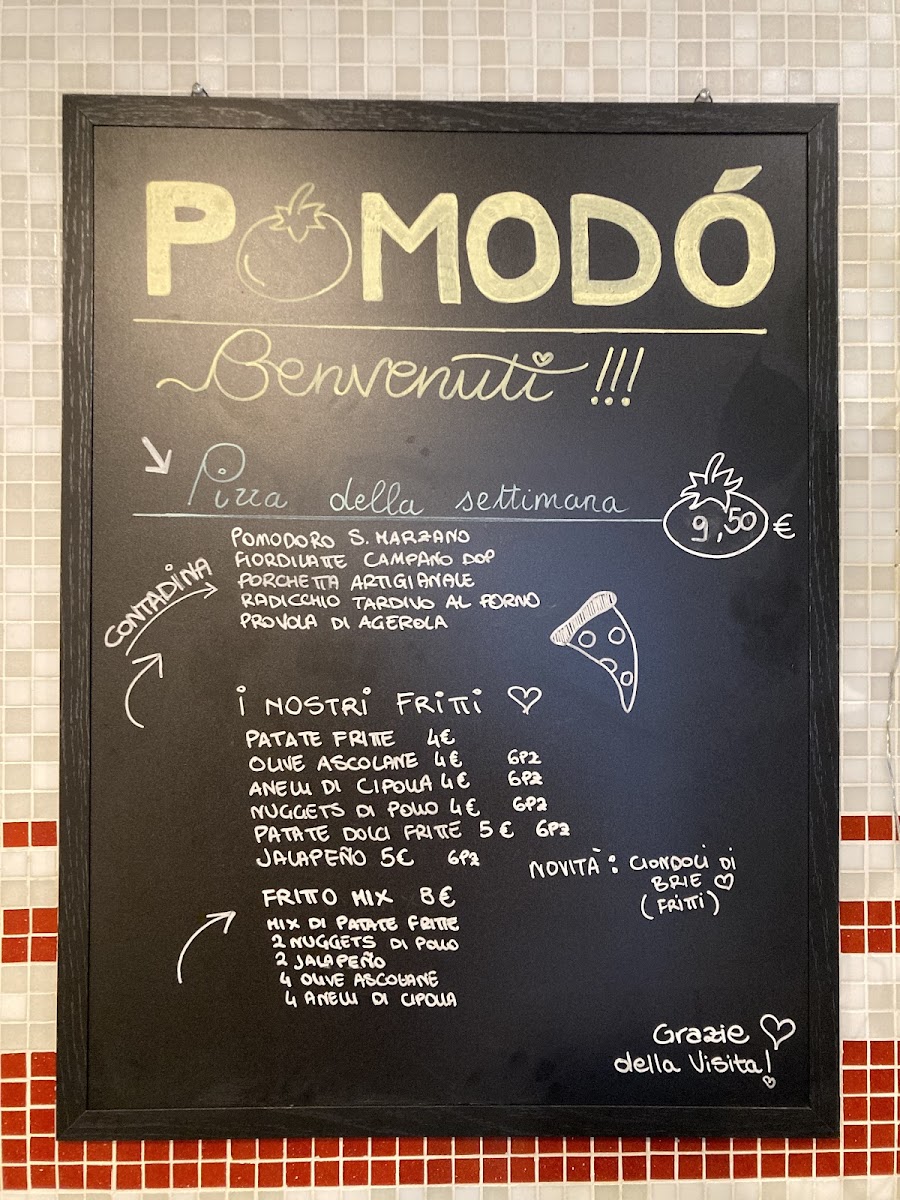 POMODÓ
Benvenuti !!!
Pizza della settimana
9,50 €
CONTADINA
POMODORO S. MARZANO
FIORDILATTE CAMPANO DOP
PORCHETTA ARTIGIANALE
RADICCHIO TARDIVO AL FORNO
PROVOLA DI AGEROLA
I NOSTRI FRITTI
PATATE FRITTE 4€
OLIVE ASCOLANE 4€ 6PZ
ANELLI DI CIPOLLA 4€ 6PZ
NUGGETS DI POLLO 4€ 6PZ
PATATE DOLCI FRITTE 5€ 6PZ
JALAPEÑO 5€ 6PZ
NOVITÀ: CIONDOLI DI
BRIE
(FRITTI)
FRITTO MIX 8€
MIX DI PATATE FRITTE
2 NUGGETS DI POLLO
2 JALAPEÑO
4 OLIVE ASCOLANE
4 ANELLI DI CIPOLLA
Grazie
della Visita!